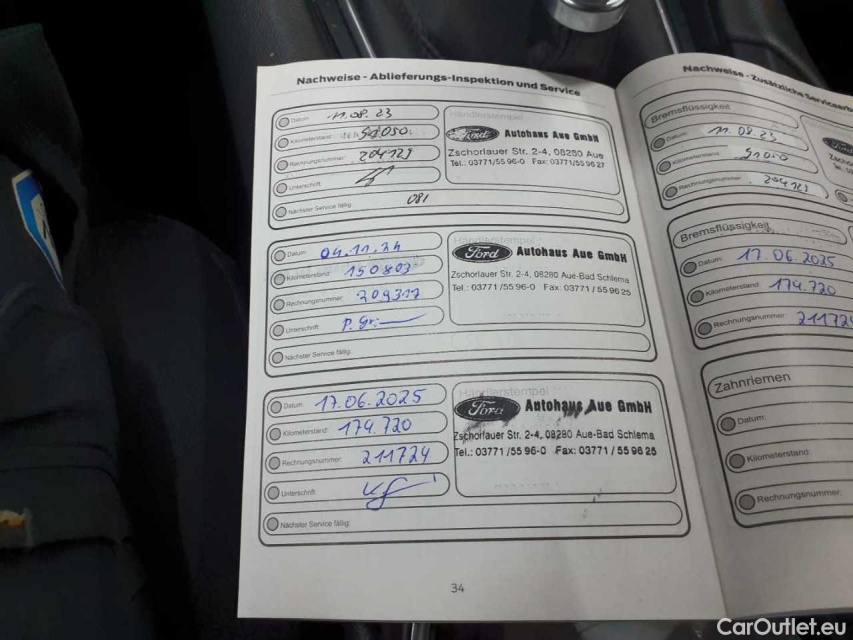 Nachweise - Ablieferungs-Inspektion und Service
Datum: 11.08.23
Kilometerstand: 91050
Rechnungsnummer: 204129
Unterschrift:
Nächster Service fällig: 081
Händlerstempel
Ford Autohaus Aue GmbH
Zschorlauer Str. 2-4, 08280 Aue
Tel.: 03771/55 96-0 Fax: 03771/55 96 27
Datum: 04.11.24
Kilometerstand: 150803
Rechnungsnummer: 209317
Unterschrift:
Nächster Service fällig:
Ford Autohaus Aue GmbH
Zschorlauer Str. 2-4, 08280 Aue-Bad Schlema
Tel.: 03771/55 96-0 Fax: 03771 / 55 96 25
Datum: 17.06.2025
Kilometerstand: 174.720
Rechnungsnummer: 211724
Unterschrift:
Nächster Service fällig:
Händlerstempel
Ford Autohaus Aue GmbH
Zschorlauer Str. 2-4, 08280 Aue-Bad Schlema
Tel.: 03771 /55 96-0 Fax: 03771 / 55 96 25
34
Nachweise - Zusätzliche Servicearb
Bremsflüssigkeit
Datum: 11.08.23
Kilometerstand: 91050
Rechnungsnummer: 204129
Bremsflüssigkeit
Datum: 17.06.2025
Kilometerstand: 174.720
Rechnungsnummer: 211724
Zahnriemen
Datum:
Kilometerstand:
Rechnungsnummer:
CarOutlet.eu